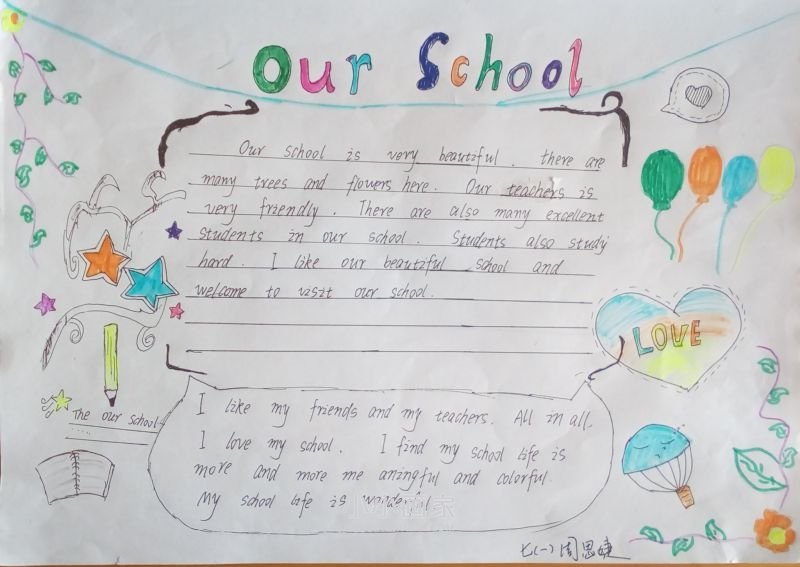 Our School
Our school is very beautiful. there are
many trees and flowers here. Our teachers is
very friendly. There are also many excellent
students in our school. Students also study
hard. I like our beautiful school and
welcome to visit our school.
LOVE
The our school
I like my friends and my teachers. All in all,
I love my school. I find my school life is
more and more me aningful and colorful.
My school life is wonderful
七(一)周思婕